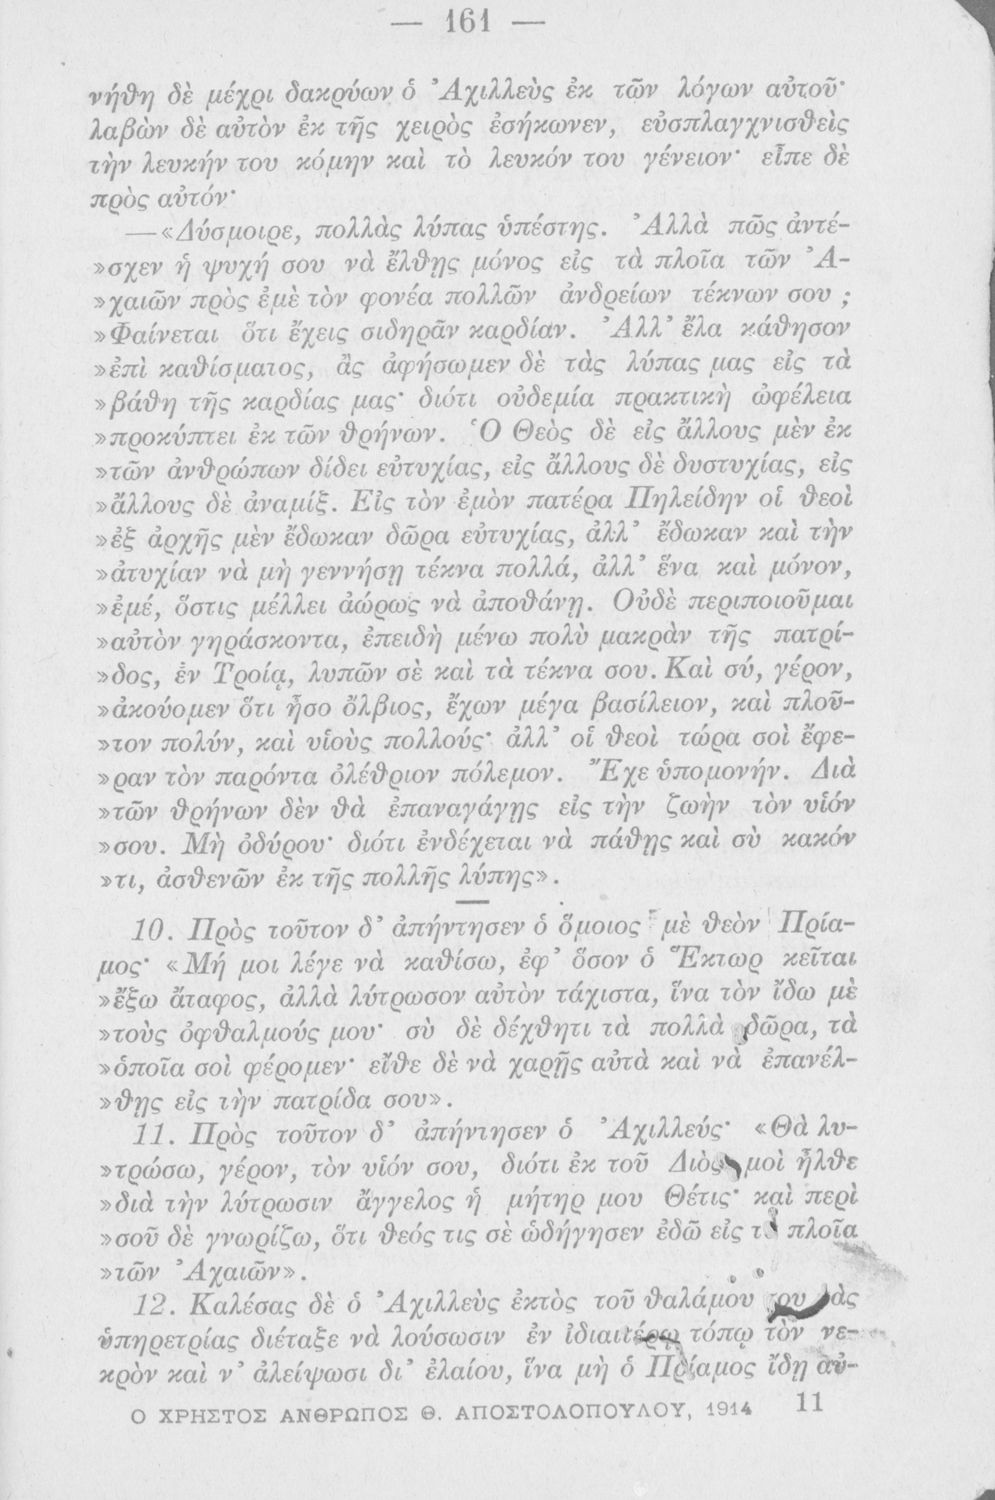 — 161 —
νήθη δὲ μέχρι δακρύων ὁ Ἀχιλλεὺς ἐκ τῶν λόγων αὐτοῦ·
λαβὼν δὲ αὐτὸν ἐκ τῆς χειρὸς ἐσήκωνεν, εὐσπλαγχνισθεὶς
τὴν λευκήν του κόμην καὶ τὸ λευκόν του γένειον· εἶπε δὲ
πρὸς αὐτόν·
—«Δύσμοιρε, πολλὰς λύπας ὑπέστης. Ἀλλὰ πῶς ἀντέ-
»σχεν ἡ ψυχή σου νὰ ἔλθῃς μόνος εἰς τὰ πλοῖα τῶν Ἀ-
»χαιῶν πρὸς ἐμὲ τὸν φονέα πολλῶν ἀνδρείων τέκνων σου ;
»Φαίνεται ὅτι ἔχεις σιδηρᾶν καρδίαν. Ἀλλ’ ἔλα κάθησον
»ἐπὶ καθίσματος, ἂς ἀφήσωμεν δὲ τὰς λύπας μας εἰς τὰ
»βάθη τῆς καρδίας μας· διότι οὐδεμία πρακτικὴ ὠφέλεια
»προκύπτει ἐκ τῶν θρήνων. Ὁ Θεὸς δὲ εἰς ἄλλους μὲν ἐκ
»τῶν ἀνθρώπων δίδει εὐτυχίας, εἰς ἄλλους δὲ δυστυχίας, εἰς
»ἄλλους δὲ ἀναμίξ. Εἰς τὸν ἐμὸν πατέρα Πηλείδην οἱ θεοὶ
»ἐξ ἀρχῆς μὲν ἔδωκαν δῶρα εὐτυχίας, ἀλλ’ ἔδωκαν καὶ τὴν
»ἀτυχίαν νὰ μὴ γεννήσῃ τέκνα πολλά, ἀλλ’ ἕνα καὶ μόνον,
»ἐμέ, ὅστις μέλλει ἀώρως νὰ ἀποθάνῃ. Οὐδὲ περιποιοῦμαι
»αὐτὸν γηράσκοντα, ἐπειδὴ μένω πολὺ μακρὰν τῆς πατρί-
»δος, ἐν Τροίᾳ, λυπῶν σὲ καὶ τὰ τέκνα σου. Καὶ σύ, γέρον,
»ἀκούομεν ὅτι ἦσο ὄλβιος, ἔχων μέγα βασίλειον, καὶ πλοῦ-
»τον πολύν, καὶ υἱοὺς πολλούς· ἀλλ’ οἱ θεοὶ τώρα σοὶ ἔφε-
»ραν τὸν παρόντα ὀλέθριον πόλεμον. Ἔχε ὑπομονήν. Διὰ
»τῶν θρήνων δὲν θὰ ἐπαναγάγῃς εἰς τὴν ζωὴν τὸν υἱόν
»σου. Μὴ ὀδύρου· διότι ἐνδέχεται νὰ πάθῃς καὶ σὺ κακόν
»τι, ἀσθενῶν ἐκ τῆς πολλῆς λύπης».
10. Πρὸς τοῦτον δ’ ἀπήντησεν ὁ ὅμοιος μὲ θεὸν Πρία-
μος· «Μή μοι λέγε νὰ καθίσω, ἐφ’ ὅσον ὁ Ἕκτωρ κεῖται
»ἔξω ἄταφος, ἀλλὰ λύτρωσον αὐτὸν τάχιστα, ἵνα τὸν ἴδω μὲ
»τοὺς ὀφθαλμούς μου· σὺ δὲ δέχθητι τὰ πολλὰ δῶρα, τὰ
»ὁποῖα σοὶ φέρομεν· εἴθε δὲ νὰ χαρῇς αὐτὰ καὶ νὰ ἐπανέλ-
»θῃς εἰς τὴν πατρίδα σου».
11. Πρὸς τοῦτον δ’ ἀπήντησεν ὁ Ἀχιλλεύς· «Θὰ λυ-
»τρώσω, γέρον, τὸν υἱόν σου, διότι ἐκ τοῦ Διὸς μοὶ ἦλθε
»διὰ τὴν λύτρωσιν ἄγγελος ἡ μήτηρ μου Θέτις· καὶ περὶ
»σοῦ δὲ γνωρίζω, ὅτι θεός τις σὲ ὡδήγησεν ἐδῶ εἰς τὰ πλοῖα
»τῶν Ἀχαιῶν».
12. Καλέσας δὲ ὁ Ἀχιλλεὺς ἐκτὸς τοῦ θαλάμου του τὰς
ὑπηρετρίας διέταξε νὰ λούσωσιν ἐν ἰδιαιτέρῳ τόπῳ τὸν νε-
κρὸν καὶ ν’ ἀλείψωσι δι’ ἐλαίου, ἵνα μὴ ὁ Πρίαμος ἴδῃ αὐ-
Ο ΧΡΗΣΤΟΣ ΑΝΘΡΩΠΟΣ Θ. ΑΠΟΣΤΟΛΟΠΟΥΛΟΥ, 1914 11